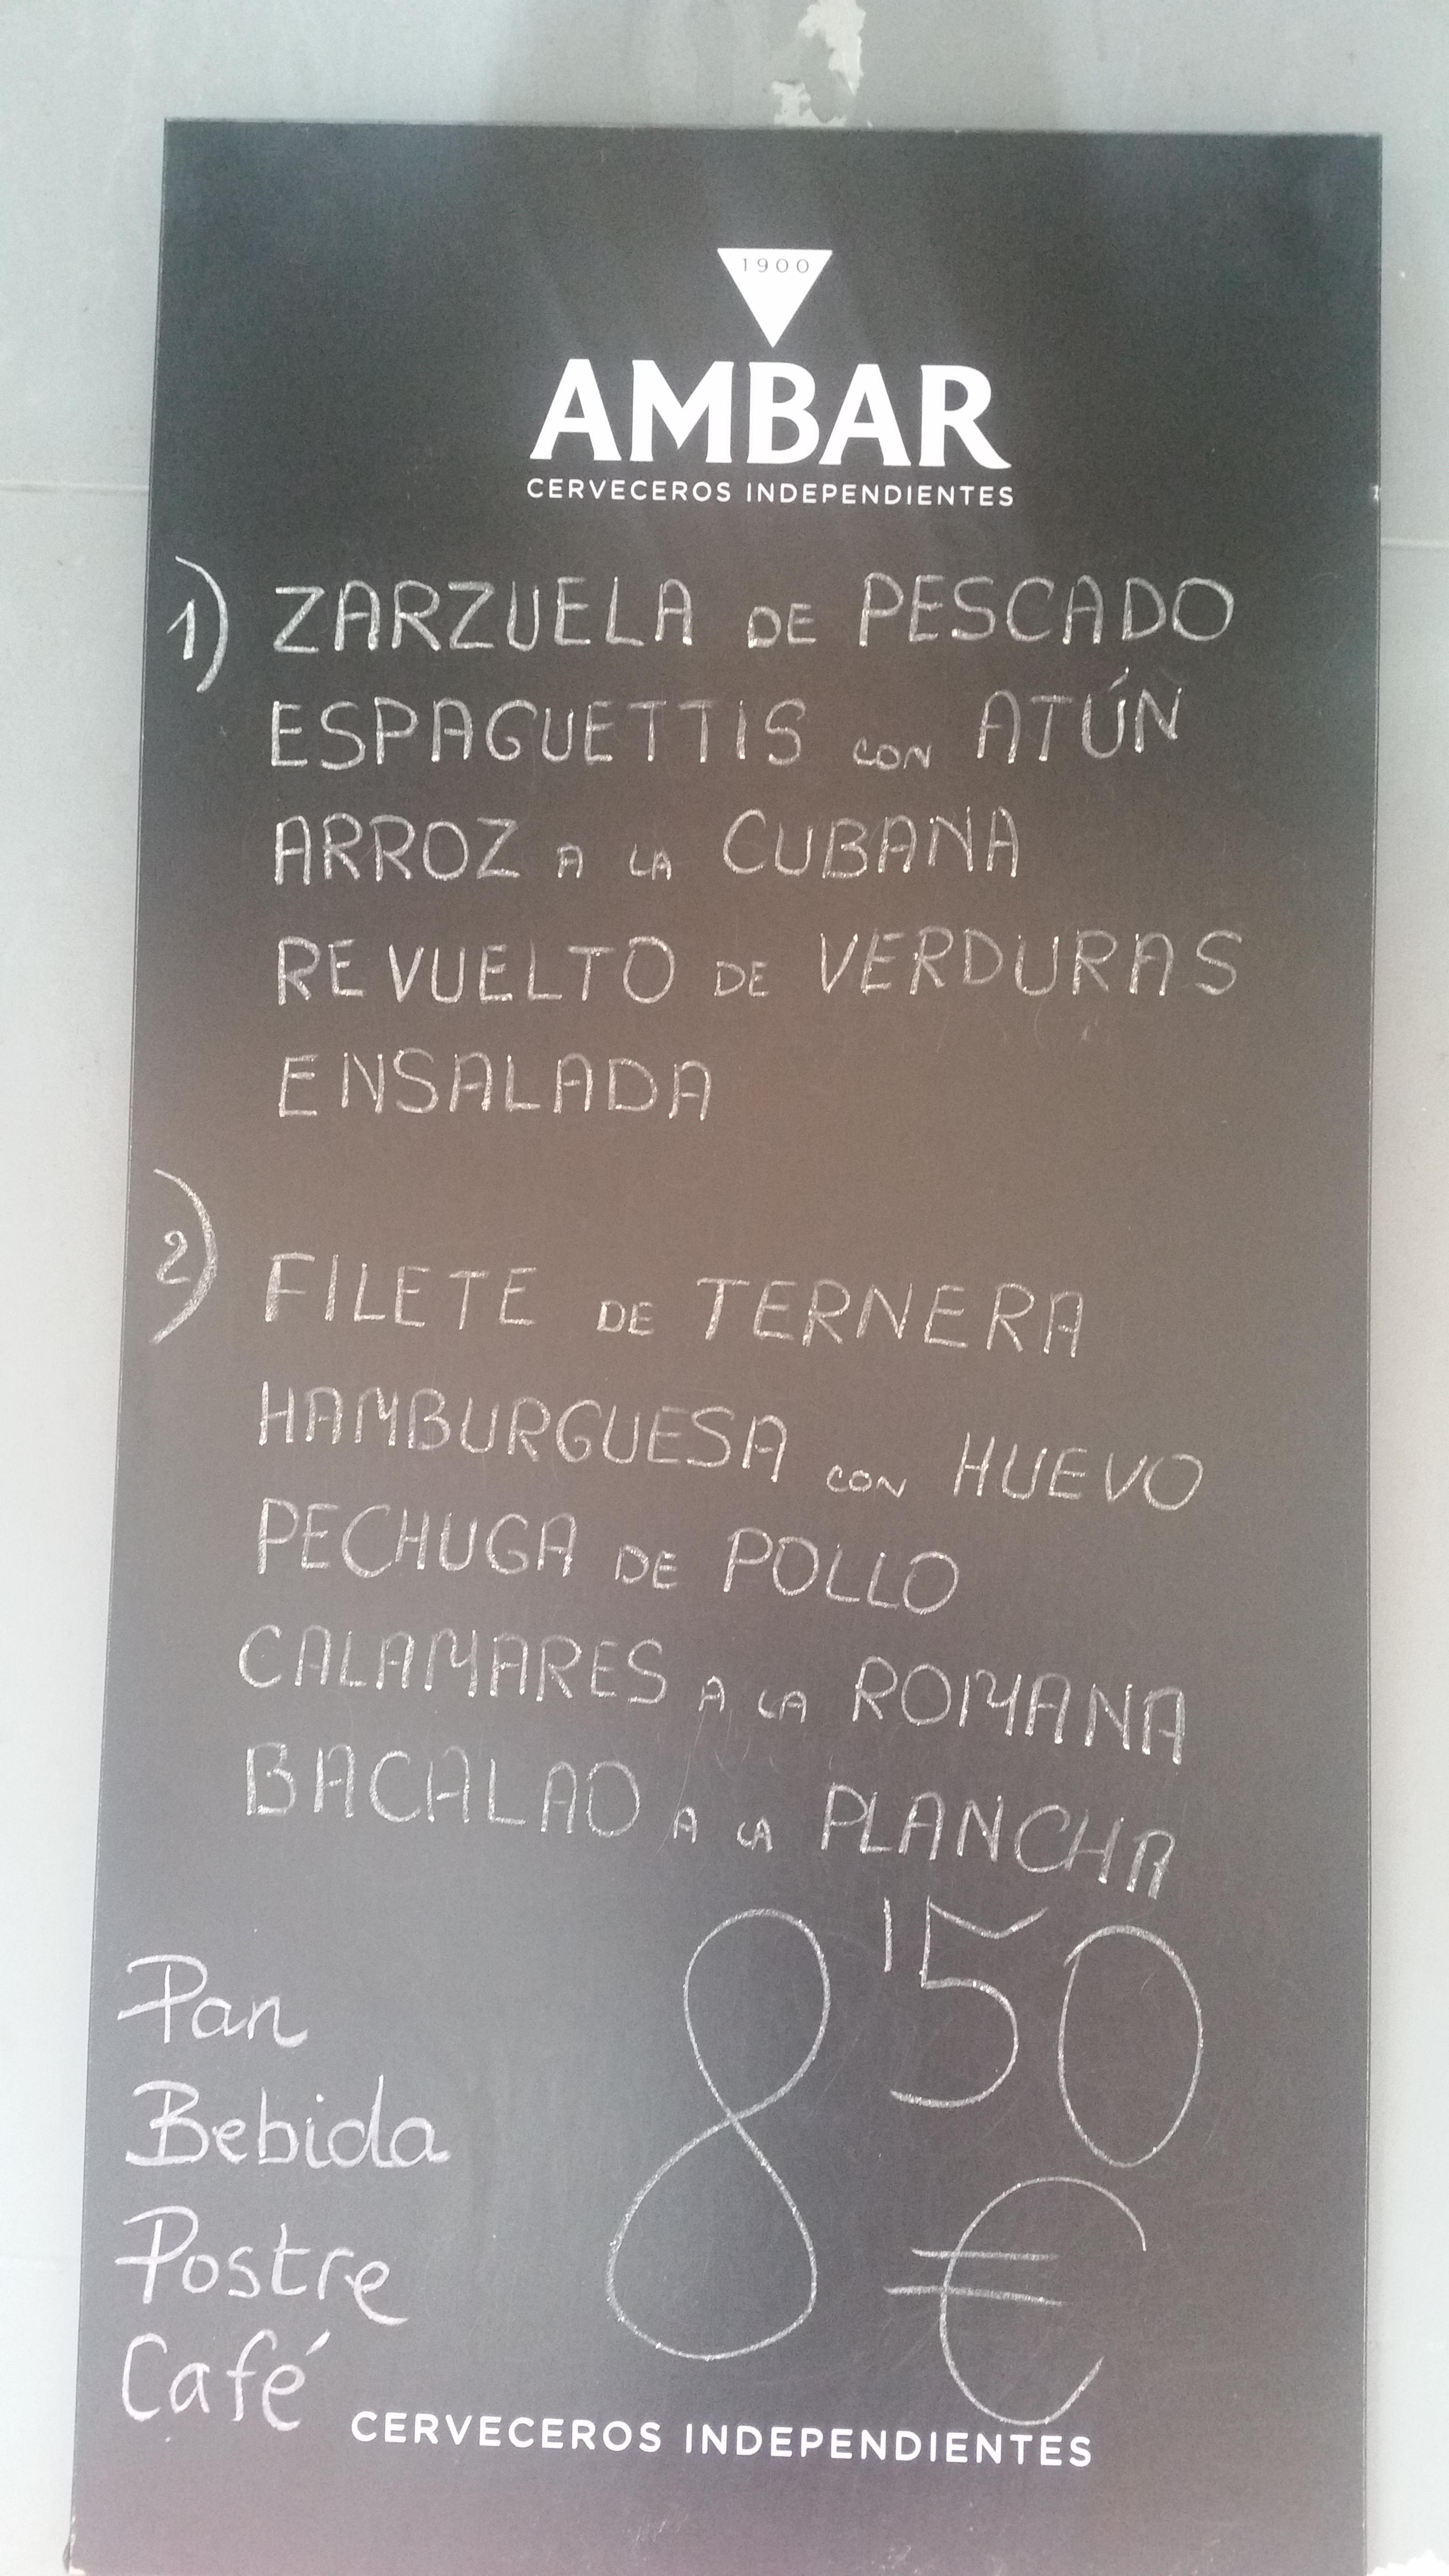 1900
AMBAR
CERVECEROS INDEPENDIENTES
1) ZARZUELA DE PESCADO
ESPAGUETTIS CON ATÚN
ARROZ A LA CUBANA
REVUELTO DE VERDURAS
ENSALADA
2) FILETE DE TERNERA
HAMBURGUESA CON HUEVO
PECHUGA DE POLLO
CALAMARES A LA ROMANA
BACALAO A LA PLANCHA
Pan
Bebida
Postre
Café
8'50
€
CERVECEROS INDEPENDIENTES